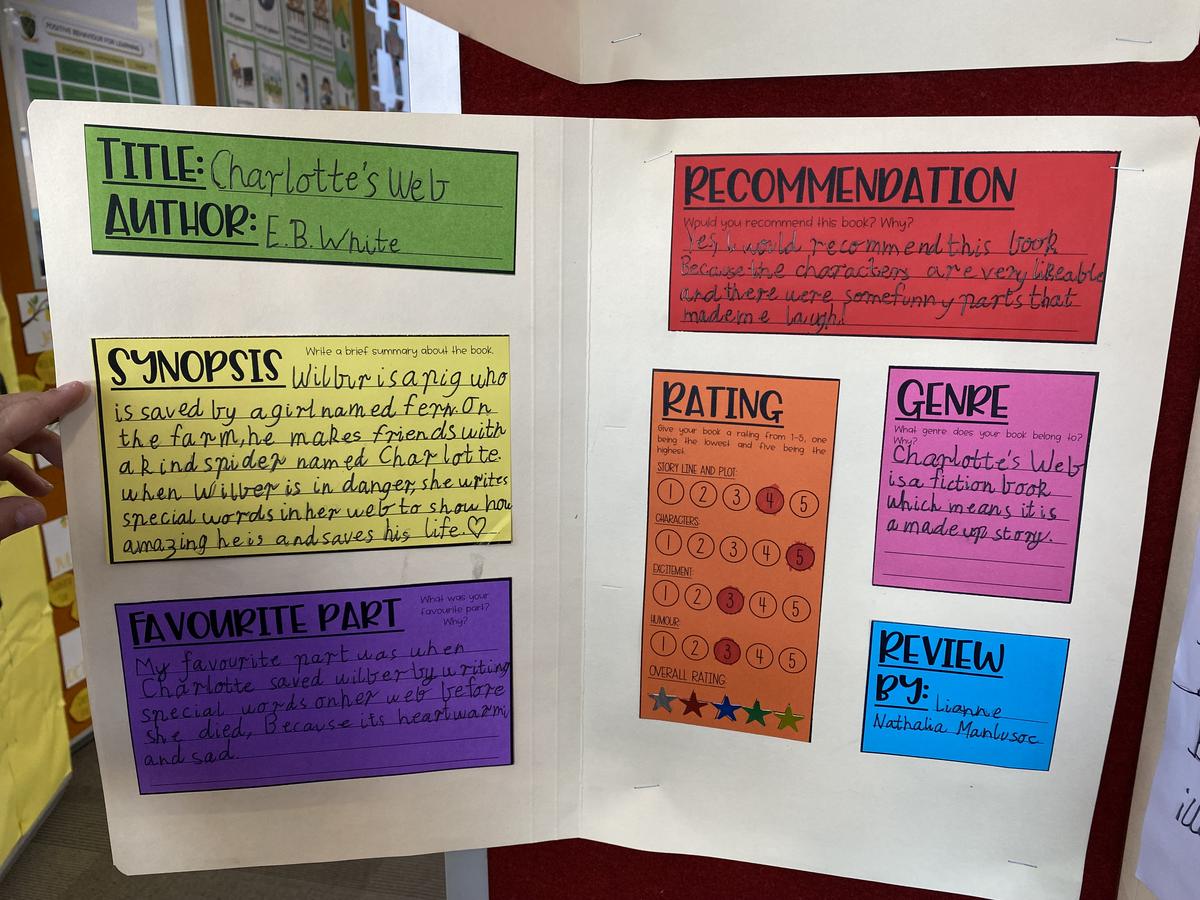 POSITIVE BEHAVIOUR FOR LEARNING
TITLE: Charlotte's Web
AUTHOR: E.B. White
SYNOPSIS Write a brief summary about the book.
Wilbur is a pig who
is saved by a girl named fern. On
the farm, he makes friends with
a kind spider named Charlotte.
when Wilber is in danger, she writes
special words in her web to show how
amazing he is and saves his life. ♡
FAVOURITE PART What was your
favourite part?
Why?
My favourite part was when
Charlotte saved wilber by writing
special words on her web before
she died, Because its heartwarmi
and sad.
RECOMMENDATION
Would you recommend this book? Why?
Yes, I would recommend this book
Because the characters are very likeable
and there were some funny parts that
made me laugh!
RATING
Give your book a rating from 1-5, one
being the lowest and five being the
highest.
STORY LINE AND PLOT:
1 2 3 4 5
CHARACTERS:
1 2 3 4 5
EXCITEMENT:
1 2 3 4 5
HUMOUR:
1 2 3 4 5
OVERALL RATING:
GENRE
What genre does your book belong to?
Why?
Charlotte's Web
is a fiction book
which means it is
a made up story.
REVIEW
BY: Lianne
Nathalia Manlusoc